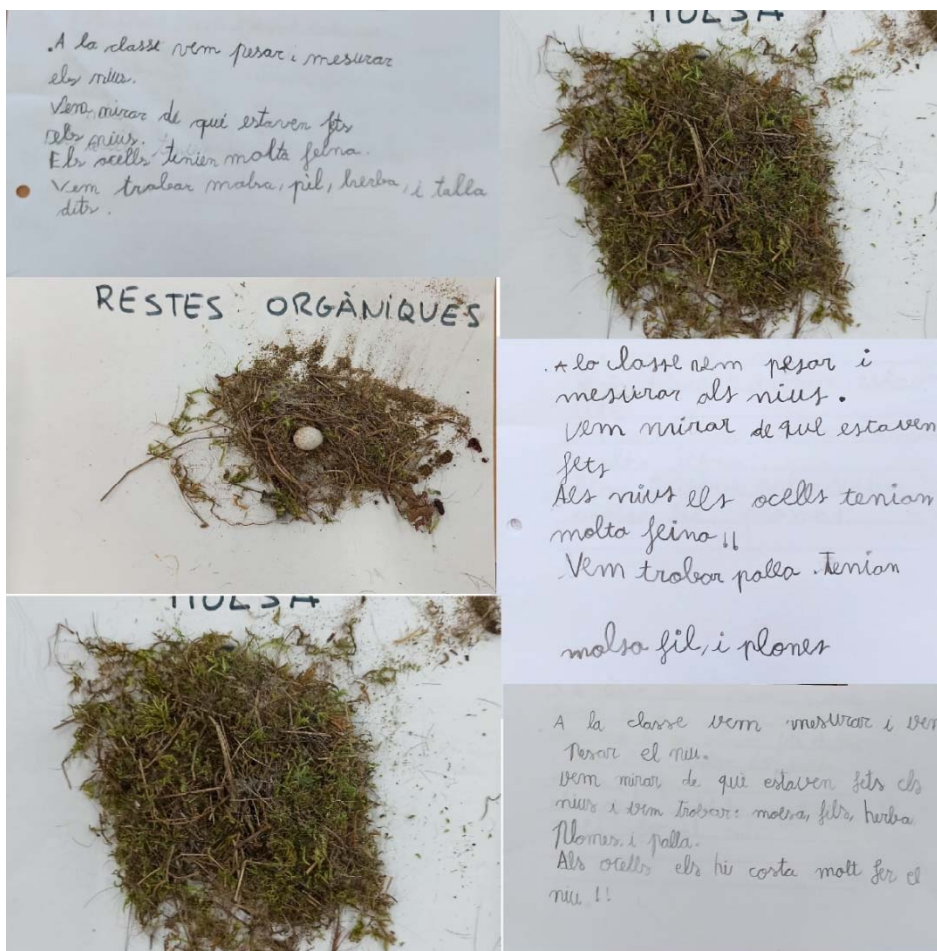 .A la classe vem pesar i mesurar
els nius.
Vem mirar de qué estaven fets
els nius.
Els ocells tenien molta feina.
Vem trobar molsa, pèl, herba, i talla
dits.
MOLSA
RESTES ORGÀNIQUES
.A la classe vem pesar i
mesurar als nius.
Vem mirar de que estaven
fets
Als nius els ocells tenian
molta feina !!
Vem trobar palla. Tenian
molsa fil, i plones
MOLSA
A la classe vem mesurar i vem
Pesar el niu.
Vem mirar de qué estaven fets els
nius i vem trobar: molsa, fils, herba
Plomes i palla.
Als ocells els hi costa molt fer el
niu !!